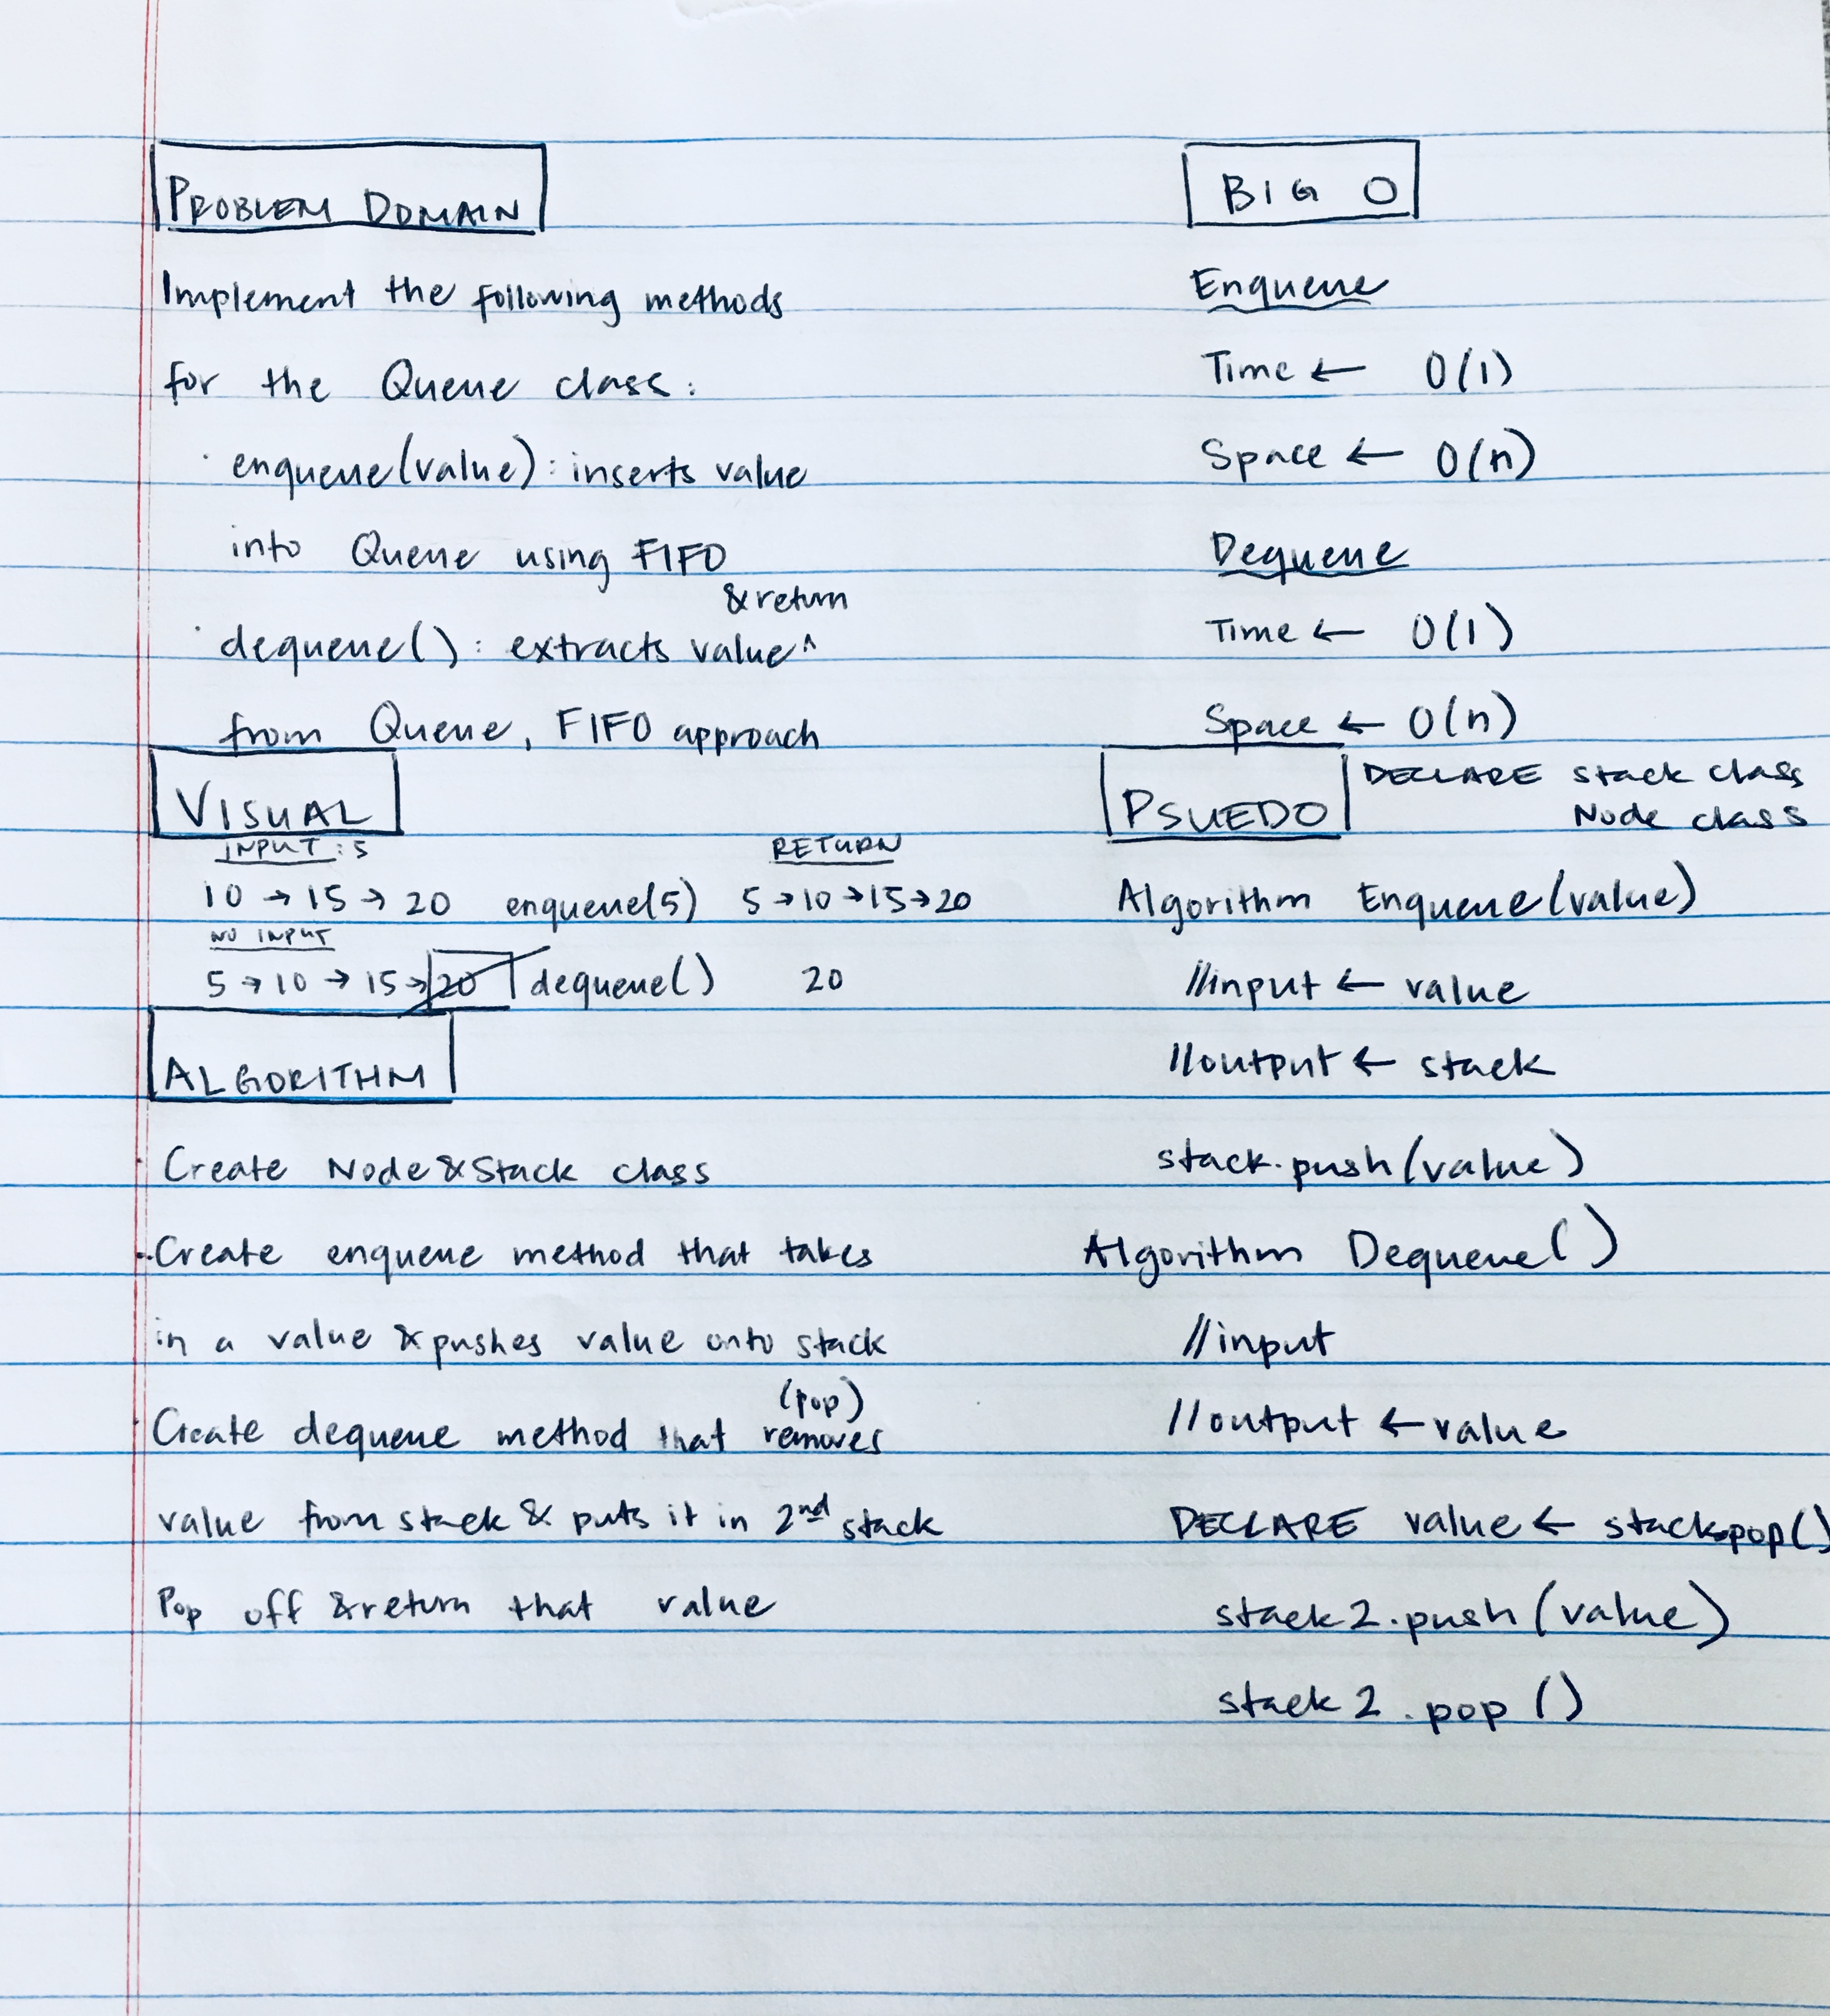 PROBLEM DOMAIN
Implement the following methods
for the Queue class:
· enqueue(value): inserts value
into Queue using FIFO
& return
· dequeue(): extracts value ^
from Queue, FIFO approach
VISUAL
INPUT: 5
RETURN
10 → 15 → 20 enqueue(5) 5→10→15→20
NO INPUT
5 → 10 → 15 → 20 dequeue() 20
ALGORITHM
· Create Node & Stack class
· Create enqueue method that takes
in a value & pushes value onto stack
(pop)
· Create dequeue method that removes
value from stack & puts it in 2nd stack
Pop off & return that value
BIG O
Enqueue
Time ← O(1)
Space ← O(n)
Dequeue
Time ← O(1)
Space ← O(n)
PSUEDO
DECLARE stack class
Node class
Algorithm Enqueue(value)
//input ← value
//output ← stack
stack.push(value)
Algorithm Dequeue()
//input
//output ← value
DECLARE value ← stack.pop()
stack2.push(value)
stack2.pop()